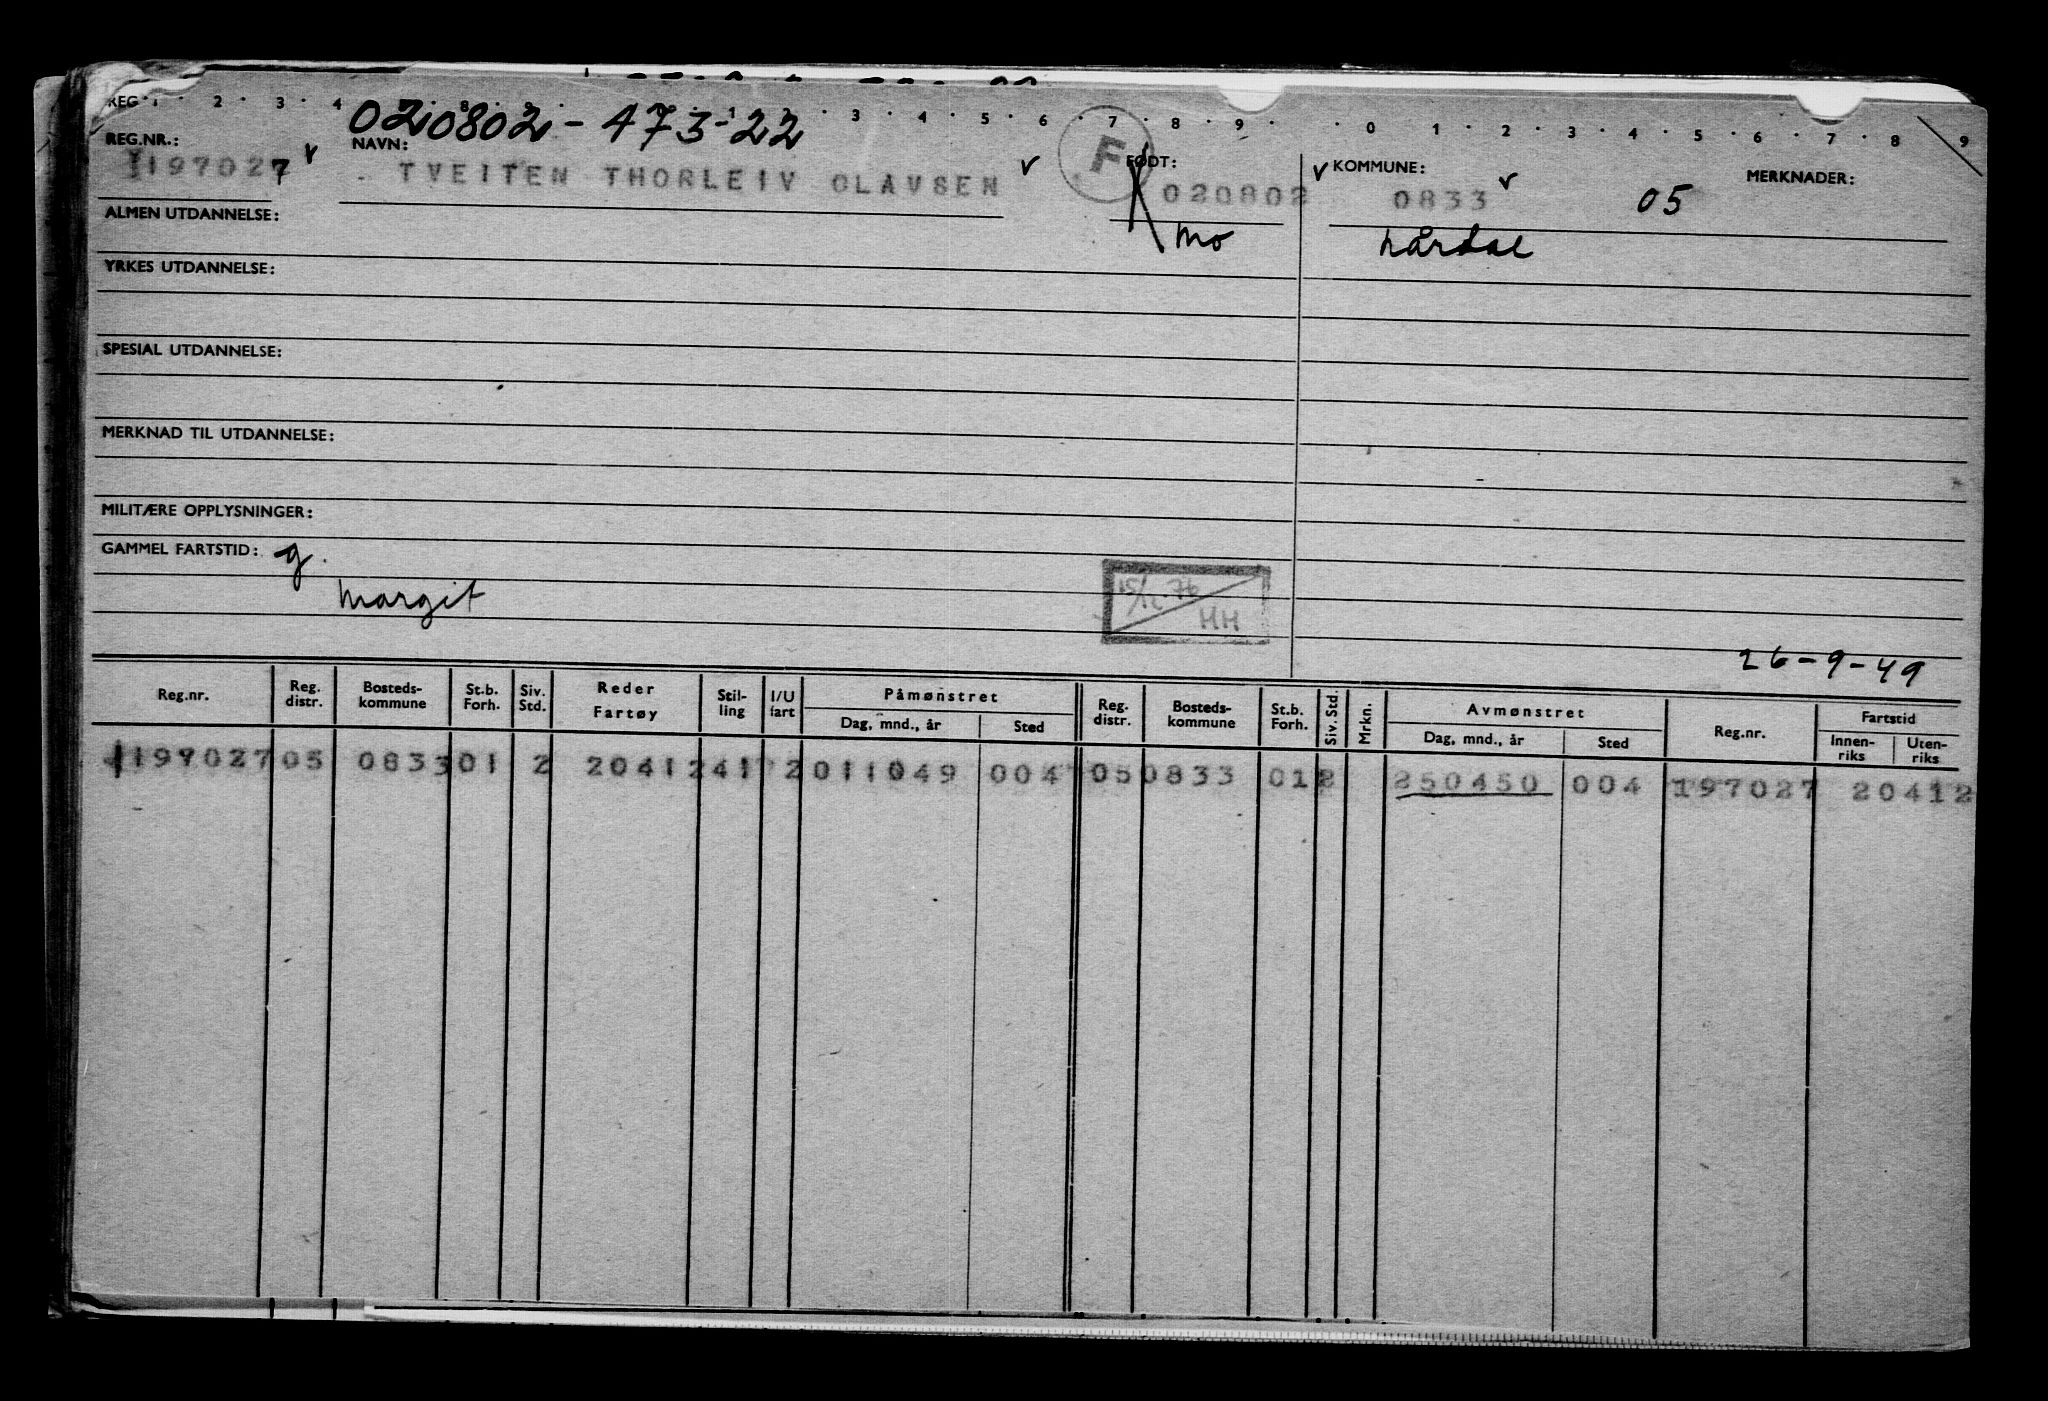 REG 1 · 2 · 3 · 4 · 3 · 4 · 5 · 6 · 7 · 8 · 9 · · 0 · 1 · 2 · 3 · 4 · 5 · 6 · 7 · 8 9
020802 - 473-22
REG.NR.: NAVN: FØDT: KOMMUNE: MERKNADER:
197027 TVEITEN THORLEIV OLAVSEN F 020802 0833 05
ALMEN UTDANNELSE: Mo Lårdal
YRKES UTDANNELSE:
SPESIAL UTDANNELSE:
MERKNAD TIL UTDANNELSE:
MILITÆRE OPPLYSNINGER:
GAMMEL FARTSTID: g.
Margit 15/12 76 HH
26-9-49
Reg.nr. Reg. distr. Bosteds-kommune St.b. Forh. Siv. Std. Reder Fartøy Stil-ling I/U fart Påmønstret Dag, mnd., år Sted Reg. distr. Bosteds-kommune St.b. Forh. Siv. Std. Mrkn. Avmønstret Dag, mnd., år Sted Reg.nr. Fartstid Innen-riks Uten-riks
197027 05 0833 01 2 20412 41 2 011049 004 05 0833 01 2 250450 004 197027 20412